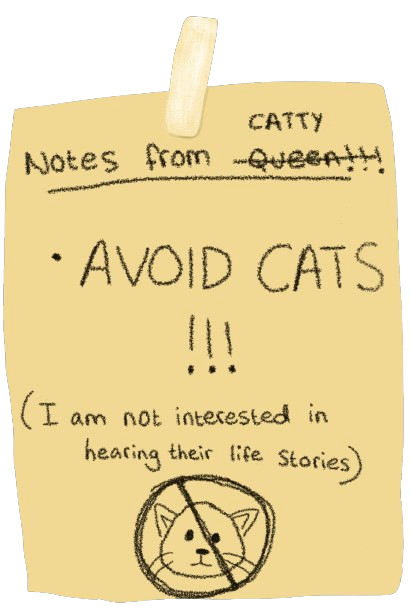 CATTY
Notes from Queen!!!
• AVOID CATS
!!!
(I am not interested in
hearing their life Stories)